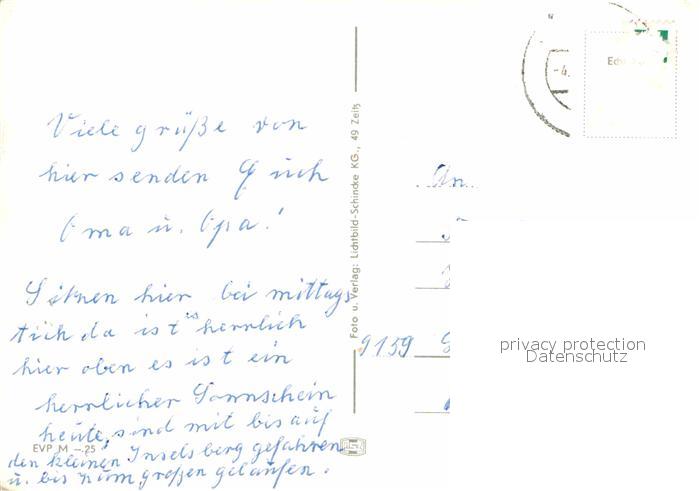 Viele grüße von
hier senden Euch
Oma u. Opa!
Sitzen hier bei mittags
tich da ist es herrlich
hier oben es ist ein
herrlicher Sonnschein
heute, sind mit bis auf
den kleinen Inselsberg gefahren
u. bis zum großen gelaufen.
EVP M -.25
Foto u. Verlag: Lichtbild-Schincke KG., 49 Zeitz
-4.
An
9159
privacy protection
Datenschutz